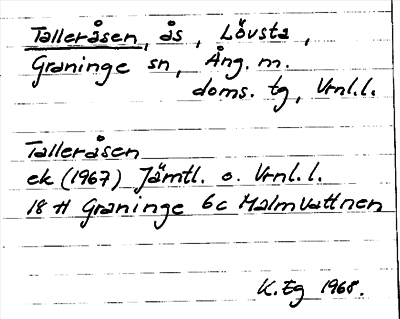 Talleråsen, ås, Lövsta,
Graninge sn, Ång. m.
doms. tg, Vrnl.l.
Talleråsen
ek (1967) Jämtl. o. Vrnl.l.
18 H Graninge 6c Malmvattnen
K. Eg 1968.